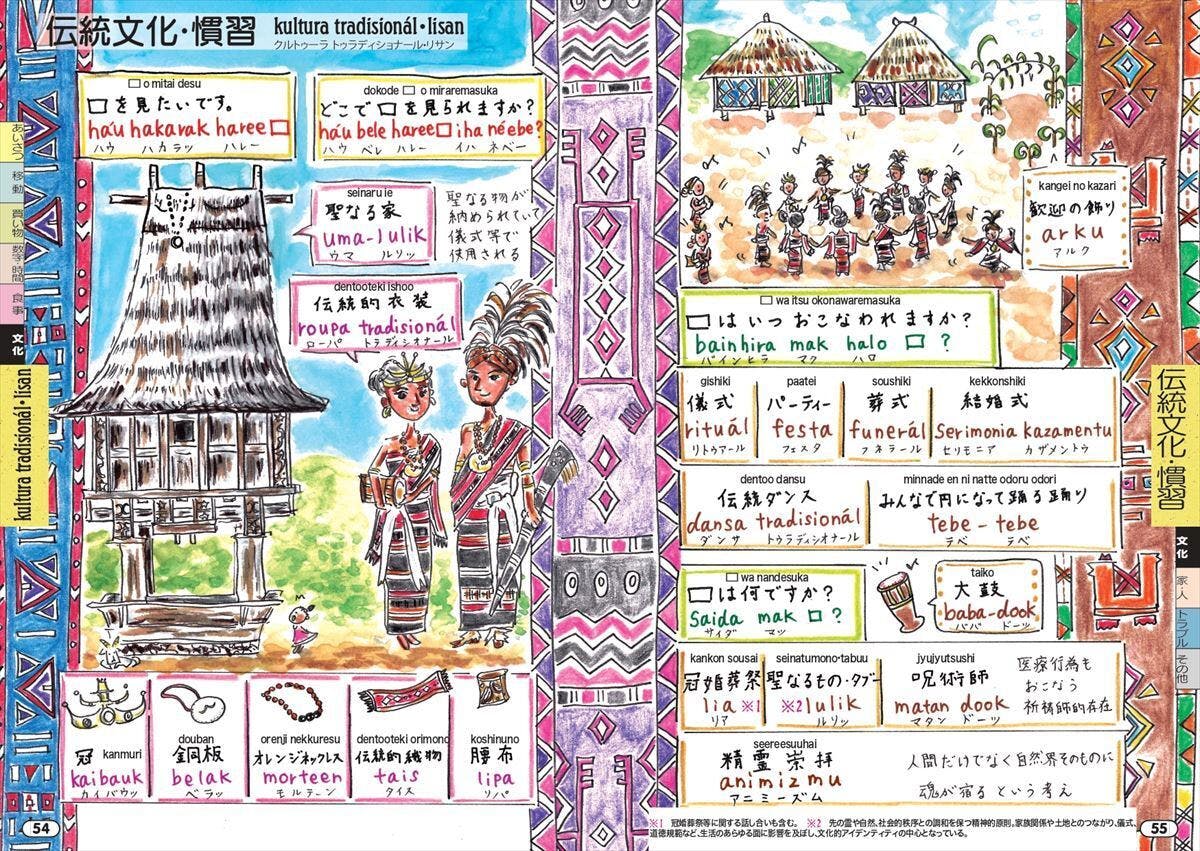 伝統文化・慣習 kultura tradisionál・lisan
クルトゥーラ トゥラディショナール・リサン
□ o mitai desu
□を見たいです。
ha'u hakarak haree □
ハウ ハカラッ ハレー
dokode □ o miraremasuka
どこで □ を見られますか?
ha'u bele haree □ iha ne'ebe?
ハウ ベレ ハレー イハ ネベー
seinaru ie
聖なる家
uma-lulik
ウマ ルリッ
聖なる物が
納められていて
儀式等で
使用される
dentooteki ishoo
伝統的衣装
roupa tradisionál
ローパ トラディシオナール
冠 kanmuri
kaibauk
カイバウッ
douban
銅板
belak
ベラッ
orenji nekkuresu
オレンジネックレス
morteen
モルテーン
dentooteki orimono
伝統的織物
tais
タイス
koshinuno
腰布
lipa
リパ
あいさつ
移動
買い物
数字・時間
食事
文化
kultura tradisionál・lisan
54
kangei no kazari
歓迎の飾り
arku
アルク
□ wa itsu okonawaremasuka
□は いつ おこなわれますか?
bainhira mak halo □ ?
バインヒラ マク ハロ
gishiki
儀式
rituál
リトゥアール
paatei
パーティー
festa
フェスタ
soushiki
葬式
funerál
フネラール
kekkonshiki
結婚式
Serimonia kazamentu
セリモニア カザメントゥ
dentoo dansu
伝統ダンス
dansa tradisionál
ダンサ トゥラディシオナール
minnade en ni natte odoru odori
みんなで円になって踊る踊り
tebe-tebe
テベ テベ
□ wa nandesuka
□は何ですか?
Saida mak □ ?
サイダ マッ
taiko
太鼓
baba-dook
ババ ドーッ
kankon sousai
冠婚葬祭
lia ※1
リア
seinatumono・tabuu
聖なるもの・タブー
※2 lulik
ルリッ
jyujyutsushi
呪術師
matan dook
マタン ドーッ
医療行為も
おこなう
祈祷師的存在
seereesuuhai
精霊崇拝
animizmu
アニミーズム
人間だけでなく自然界そのものに
魂が宿る という考え
※1 冠婚葬祭等に関する話し合いも含む。 ※2 先の霊や自然、社会的秩序との調和を保つ精神的原則。家族関係や土地とのつながり、儀式、
道徳規範など、生活のあらゆる面に影響を及ぼし、文化的アイデンティティの中心となっている。
伝統文化・慣習
文化
家・人
トラブル
その他
55